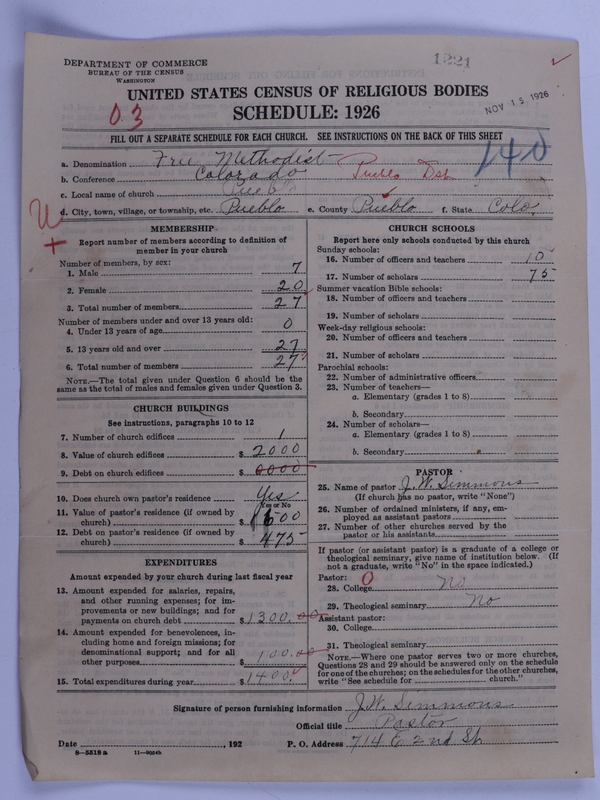 1221
DEPARTMENT OF COMMERCE
BUREAU OF THE CENSUS
WASHINGTON
UNITED STATES CENSUS OF RELIGIOUS BODIES
SCHEDULE: 1926
NOV 15 1926
03
FILL OUT A SEPARATE SCHEDULE FOR EACH CHURCH. SEE INSTRUCTIONS ON THE BACK OF THIS SHEET
140
a. Denomination Free Methodist
b. Conference Colorado Pueblo Dst
c. Local name of church Pueblo
d. City, town, village, or township, etc. Pueblo e. County Pueblo f. State Colo.
MEMBERSHIP
Report number of members according to definition of
member in your church
Number of members, by sex:
1. Male 7
2. Female 20
3. Total number of members 27
Number of members under and over 13 years old:
4. Under 13 years of age 0
5. 13 years old and over 27
6. Total number of members 27
NOTE.—The total given under Question 6 should be the
same as the total of males and females given under Question 3.
CHURCH BUILDINGS
See instructions, paragraphs 10 to 12
7. Number of church edifices 1
8. Value of church edifices $ 2000
9. Debt on church edifices $ 0000
10. Does church own pastor's residence Yes
Yes or No
11. Value of pastor's residence (if owned by
church) $
12. Debt on pastor's residence (if owned by
church) $ 475
EXPENDITURES
Amount expended by your church during last fiscal year
13. Amount expended for salaries, repairs,
and other running expenses; for im-
provements or new buildings; and for
payments on church debt $ 1300.00
14. Amount expended for benevolences, in-
cluding home and foreign missions; for
denominational support; and for all
other purposes 100.00
15. Total expenditures during year $ 1400.
CHURCH SCHOOLS
Report here only schools conducted by this church
Sunday schools:
16. Number of officers and teachers 10
17. Number of scholars 75
Summer vacation Bible schools:
18. Number of officers and teachers
19. Number of scholars
Week-day religious schools:
20. Number of officers and teachers
21. Number of scholars
Parochial schools:
22. Number of administrative officers
23. Number of teachers—
a. Elementary (grades 1 to 8)
b. Secondary
24. Number of scholars—
a. Elementary (grades 1 to 8)
b. Secondary
PASTOR
25. Name of pastor J. W. Simmons
(If church has no pastor, write "None")
26. Number of ordained ministers, if any, em-
ployed as assistant pastors
27. Number of other churches served by the
pastor or his assistants
If pastor (or assistant pastor) is a graduate of a college or
theological seminary, give name of institution below. (If
not a graduate, write "No" in the space indicated.)
Pastor: 0
28. College No
29. Theological seminary No
Assistant pastor:
30. College
31. Theological seminary
NOTE.—Where one pastor serves two or more churches,
Questions 28 and 29 should be answered only on the schedule
for one of the churches; on the schedules for the other churches,
write "See schedule for church."
Signature of person furnishing information J. W. Simmons
Official title Pastor
Date , 192 P. O. Address 714 E 2nd St
8—5518 a 11—9054b